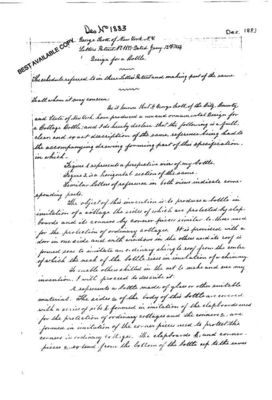 Des No 1883
Dec. 1883
BEST AVAILABLE COPY
George Scott, of New York, N.Y.
Letters Patent No 1883 Dated Jany 12 1864
Design for a bottle.
The schedule referred to in these Letters Patent and making part of the same
To all whom it may concern:
Be it known that I George Scott, of the City, County,
and State of New York have produced a new and ornamental Design for
a Cottage Bottle, and I do hereby declare that the following is a full,
clear and exact description of the same, reference being had to
the accompanying drawing forming part of this specification,
in which,
Figure 1 represents a perspective view of my bottle.
Figure 2, is a horizontal section of the same.
Similar letters of reference in both views indicate corre-
sponding parts.
The object of this invention is to produce a bottle in
imitation of a cottage the sides of which are protected by clap-
boards and its corners by corner pieces similar to those used
for the protection of ordinary cottages. It is provided with a
door on one side and with windows in the others and its roof is
formed so as to imitate an ordinary shingle roof from the centre
of which the neck of the bottle rises in imitation of a chimney.
To enable others skilled in the art to make and use my
invention. I will proceed to describe it.
A represents a bottle made of glass or other suitable
material. The sides a of the body of this bottle are covered
with a series of ribs b formed in imitation of the clapboards used
for the protection of ordinary cottages and the corners c, are
formed in imitation of the corner pieces used to protect the
corners in ordinary cottages. The clapboards b, and corner-
pieces c extend from the bottom of the bottle up to the eaves